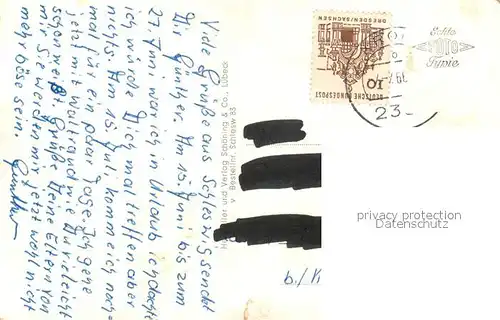 Viele Grüße aus Schleswig sendet
Dir Günther. Am 15 Juni bis zum
27. Juni war ich in Urlaub ich dachte
ich würde Dich mal treffen aber
nichts. Am 15 Juni, komme ich noch
mal für ein paar Tage. Ich gehe
jetzt mit Waltraud wie Du vieleicht
schon weißt. Grüße Deine Eltern von
mir Sie werden mir jetzt wohl nicht
mehr böse sein. Günther
und Verlag Schöning & Co., Lübeck
Bestellnr. Schlesw 83
DRESDEN/SACHSEN
10
DEUTSCHE BUNDESPOST
23-
Echte
FOTO
Typie
b./K
privacy protection
Datenschutz